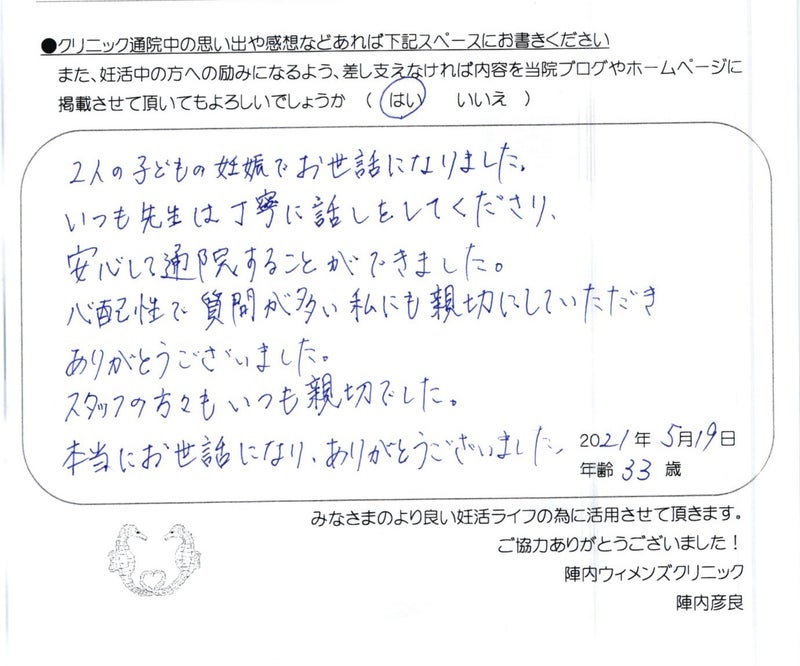 ●クリニック通院中の思い出や感想などあれば下記スペースにお書きください
また、妊活中の方への励みになるよう、差し支えなければ内容を当院ブログやホームページに
掲載させて頂いてもよろしいでしょうか （ はい いいえ ）
2人の子どもの妊娠でお世話になりました。
いつも先生は丁寧に話しをしてくださり、
安心して通院することができました。
心配性で質問が多い私にも親切にしていただき
ありがとうございました。
スタッフの方々もいつも親切でした。
本当にお世話になり、ありがとうございました。
2021年 5月19日
年齢 33 歳
みなさまのより良い妊活ライフの為に活用させて頂きます。
ご協力ありがとうございました！
陣内ウィメンズクリニック
陣内彦良